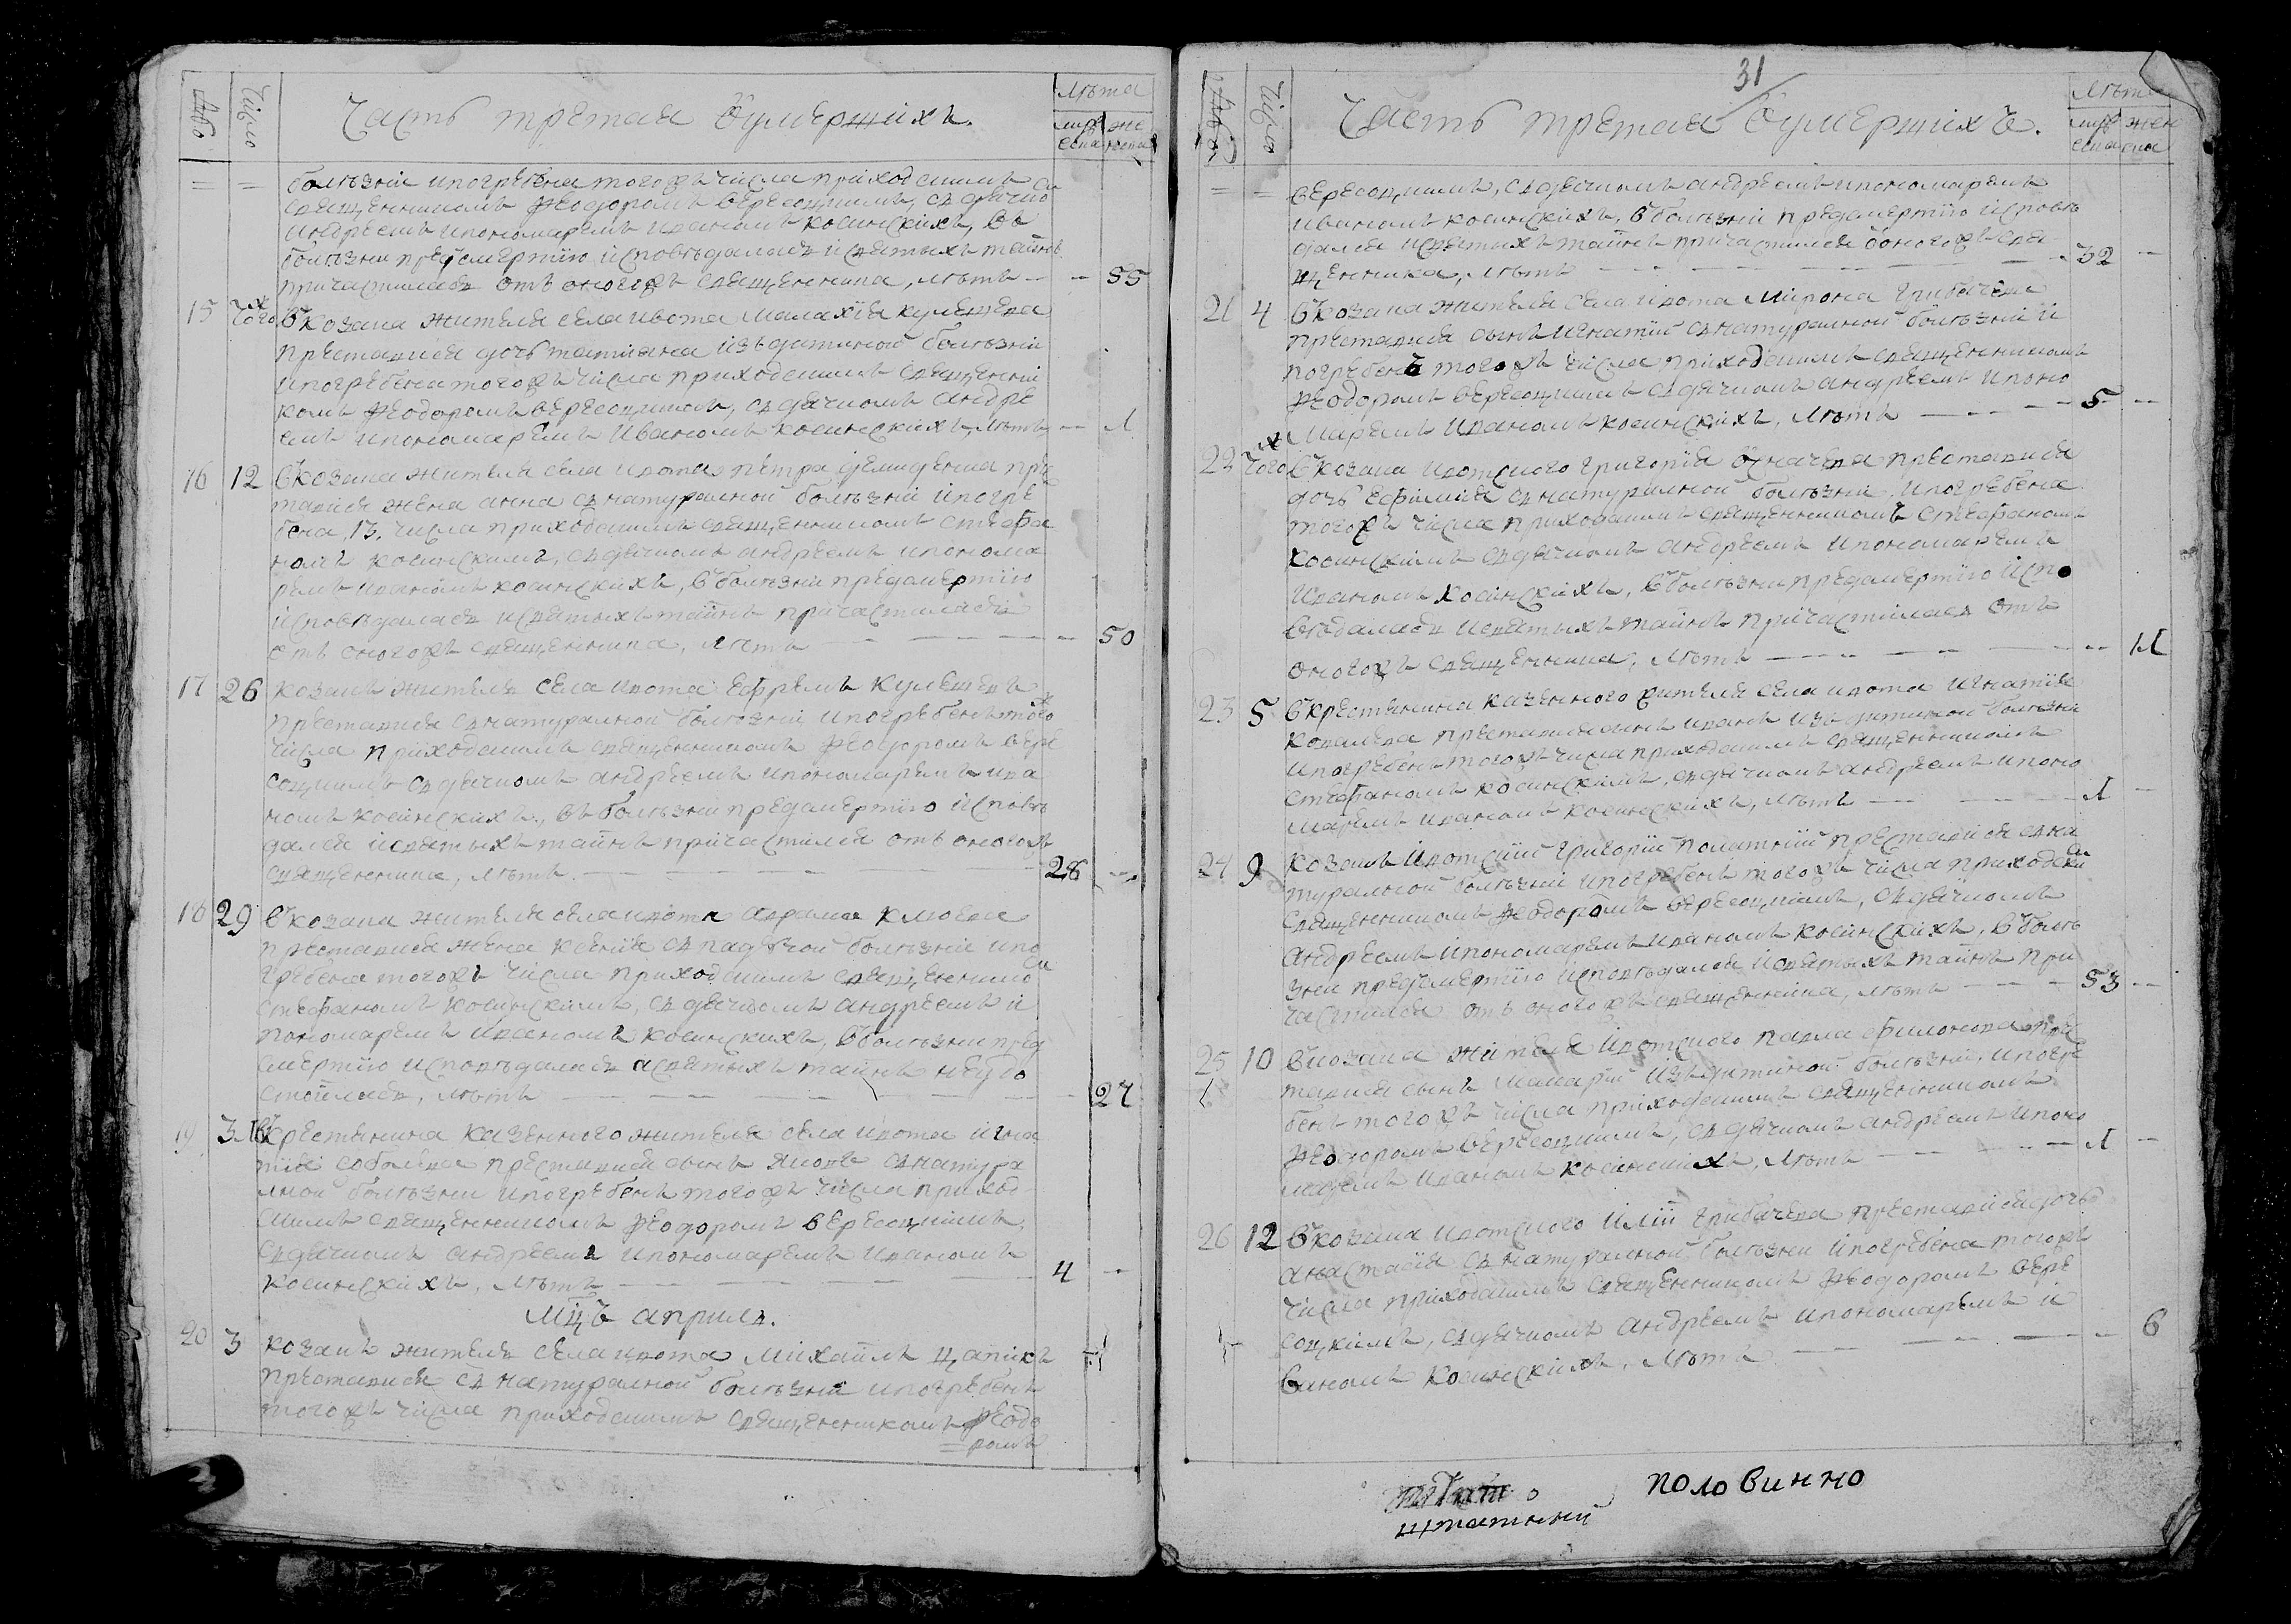 Число
Часть третая Оумершихъ.
лѣта
болѣзни ипогребена тогожъ числа приходскимъ
священникомъ Феодоромъ вересоцкимъ, сдячко
андреемъ ипономаремъ иваномъ косинскихъ, въ
болѣзни предсмертїю исповѣдалась исвятыхъ тайнъ
причастилась отъ оногожъ священника, лѣтъ 55
15 тогож Оуказака жителя села ивота малахїя кулешева
преставися дочь татїяна изъдатиной болѣзни
ипогребена тогожъ числа приходскимъ священни
комъ Феодоромъ вересоцкимъ, сдячкомъ андре
емъ ипономаремъ иваномъ косинскихъ, лѣтъ 1
16 12 Оуказака жителя села ивота петра демиденка пре
тавися жена анна снатуралной болѣзни ипогре
бена 13. числа приходскимъ священникомъ стефа
номъ косинскимъ, сдячкомъ андреемъ ипонома
ремъ иваномъ косинскихъ, Оуболѣзни предсмертїю
исповѣдалась исвятыхъ тайнъ причастилася
отъ оногожъ священника, лѣтъ 50
17 26 козакъ житель села ивота ефремъ кулешевъ
преставися снатуралной болѣзни ипогребенъ тогож
числа приходскимъ священникомъ Феодоромъ вере
соцкимъ сдячкомъ андреемъ ипономаремъ ива
номъ косинскихъ, въ болѣзни предсмертїю исповѣ
дался исвятыхъ тайнъ причастился отъ оногожъ
священника, лѣтъ 28
18 29 Оукозака жителя села ивота аврама клюева
преставися жена ксенїя спадучой болѣзни ипо
гребена тогожъ числа приходскимъ священнико
стефаномъ косинскимъ, сдячкомъ андреемъ и
пономаремъ иваномъ косинскихъ, Оуболѣзни пред
смертїю исповѣдалась асвятыхъ тайнъ неудо
стоилась, лѣтъ 27
19 31 Оукрестянина казенного жителя села ивота игна
тїя соболева преставися сынъ яковъ снатура
лной болѣзни ипогребенъ тогожъ числа приход
скимъ священникомъ Феодоромъ вересоцкимъ,
сдячкомъ андреемъ ипономаремъ иваномъ
косинскихъ, лѣтъ 4
мцъ априль.
20 3 козакъ житель села ивота михаилъ цапикъ
преставися снатуралной болѣзни ипогребенъ
тогожъ числа приходскимъ священникомъ Феодо
ромъ
31
Число
Часть третая Оумершихъ.
лѣта
вересоцкимъ, сдячкомъ андреемъ ипономаремъ
иваномъ косинскихъ, Оуболѣзни предсмертїю исповѣ
дался исвятыхъ тайнъ причастился отоногожъ свя
щенника, лѣтъ 32
21 4 Оукозака жителя села ивота мирона грибачева
преставися сынъ игнатїй снатуралной болѣзни и
погребенъ тогожъ числа приходскимъ священникомъ
Феодоромъ вересоцкимъ сдячкомъ андреемъ ипоно
маремъ иваномъ косинскихъ, лѣтъ 5
22 тогож Оукозака ивотского григорїя преставися
дочь ефимїя снатуралной болѣзни, ипогребена
тогожъ числа приходскимъ священникомъ стефаномъ
косинскимъ сдячкомъ андреемъ ипономаремъ
иваномъ косинскихъ, Оуболѣзни предсмертїю испо
вѣдалась исвятыхъ тайнъ причастилась отъ
оногожъ священника, лѣтъ
23 5 Оукрестянина казенного жителя села ивота игнатїя
ковалева преставися сынъ иванъ изъдатиной болѣзни
ипогребенъ тогожъ числа приходскимъ священникомъ
стефаномъ косинскимъ, сдячкомъ андреемъ ипоно
маремъ иваномъ косинскихъ, лѣтъ 1
24 9 козакъ ивотскїй григорїй преставися сна
туралной болѣзни ипогребенъ тогожъ числа приходски
священникомъ Феодоромъ вересоцкимъ, сдячкомъ
андреемъ ипономаремъ иваномъ косинскихъ, Оуболѣ
зни предсмертїю исповѣдался исвятыхъ тайнъ при
частился отъ оногожъ священника, лѣтъ 53
25 10 Оукозака жителя ивотского павла филонова пре
тавися сынъ макарїй изъдатиной болѣзни, ипогре
бенъ тогожъ числа приходскимъ священникомъ
Феодоромъ вересоцкимъ, сдячкомъ андреемъ ипоно
маремъ иваномъ косинскихъ, лѣтъ 1
26 12 Оукозака ивотского илїи грибачева преставися дочь
анастасїя снатуралной болѣзни ипогребена тогожъ
числа приходскимъ священникомъ Феодоромъ вере
соцкимъ, сдячкомъ андреемъ ипономаремъ и
ваномъ косинскихъ, лѣтъ 6
половинно
штатний